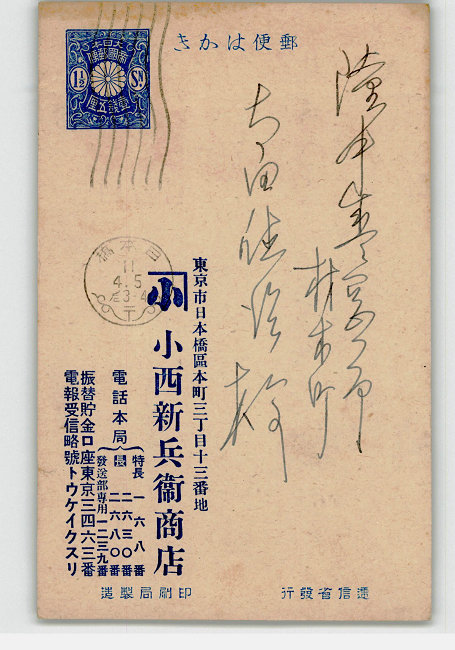 郵便はかき
大日本
帝國郵便
1½ Sn
壹銭五厘
日本橋
11
4.5
后3-4
陸中
材木町
太田
様
東京市日本橋區本町三丁目十三番地
小
小西新兵衞商店
電話本局
特長 一六八番
長 二六三〇番
二六八〇番
發送部專用 一二三九番
振替貯金口座東京三四六三番
電報受信略號トウケイクスリ
遞信省發行
印刷局製造